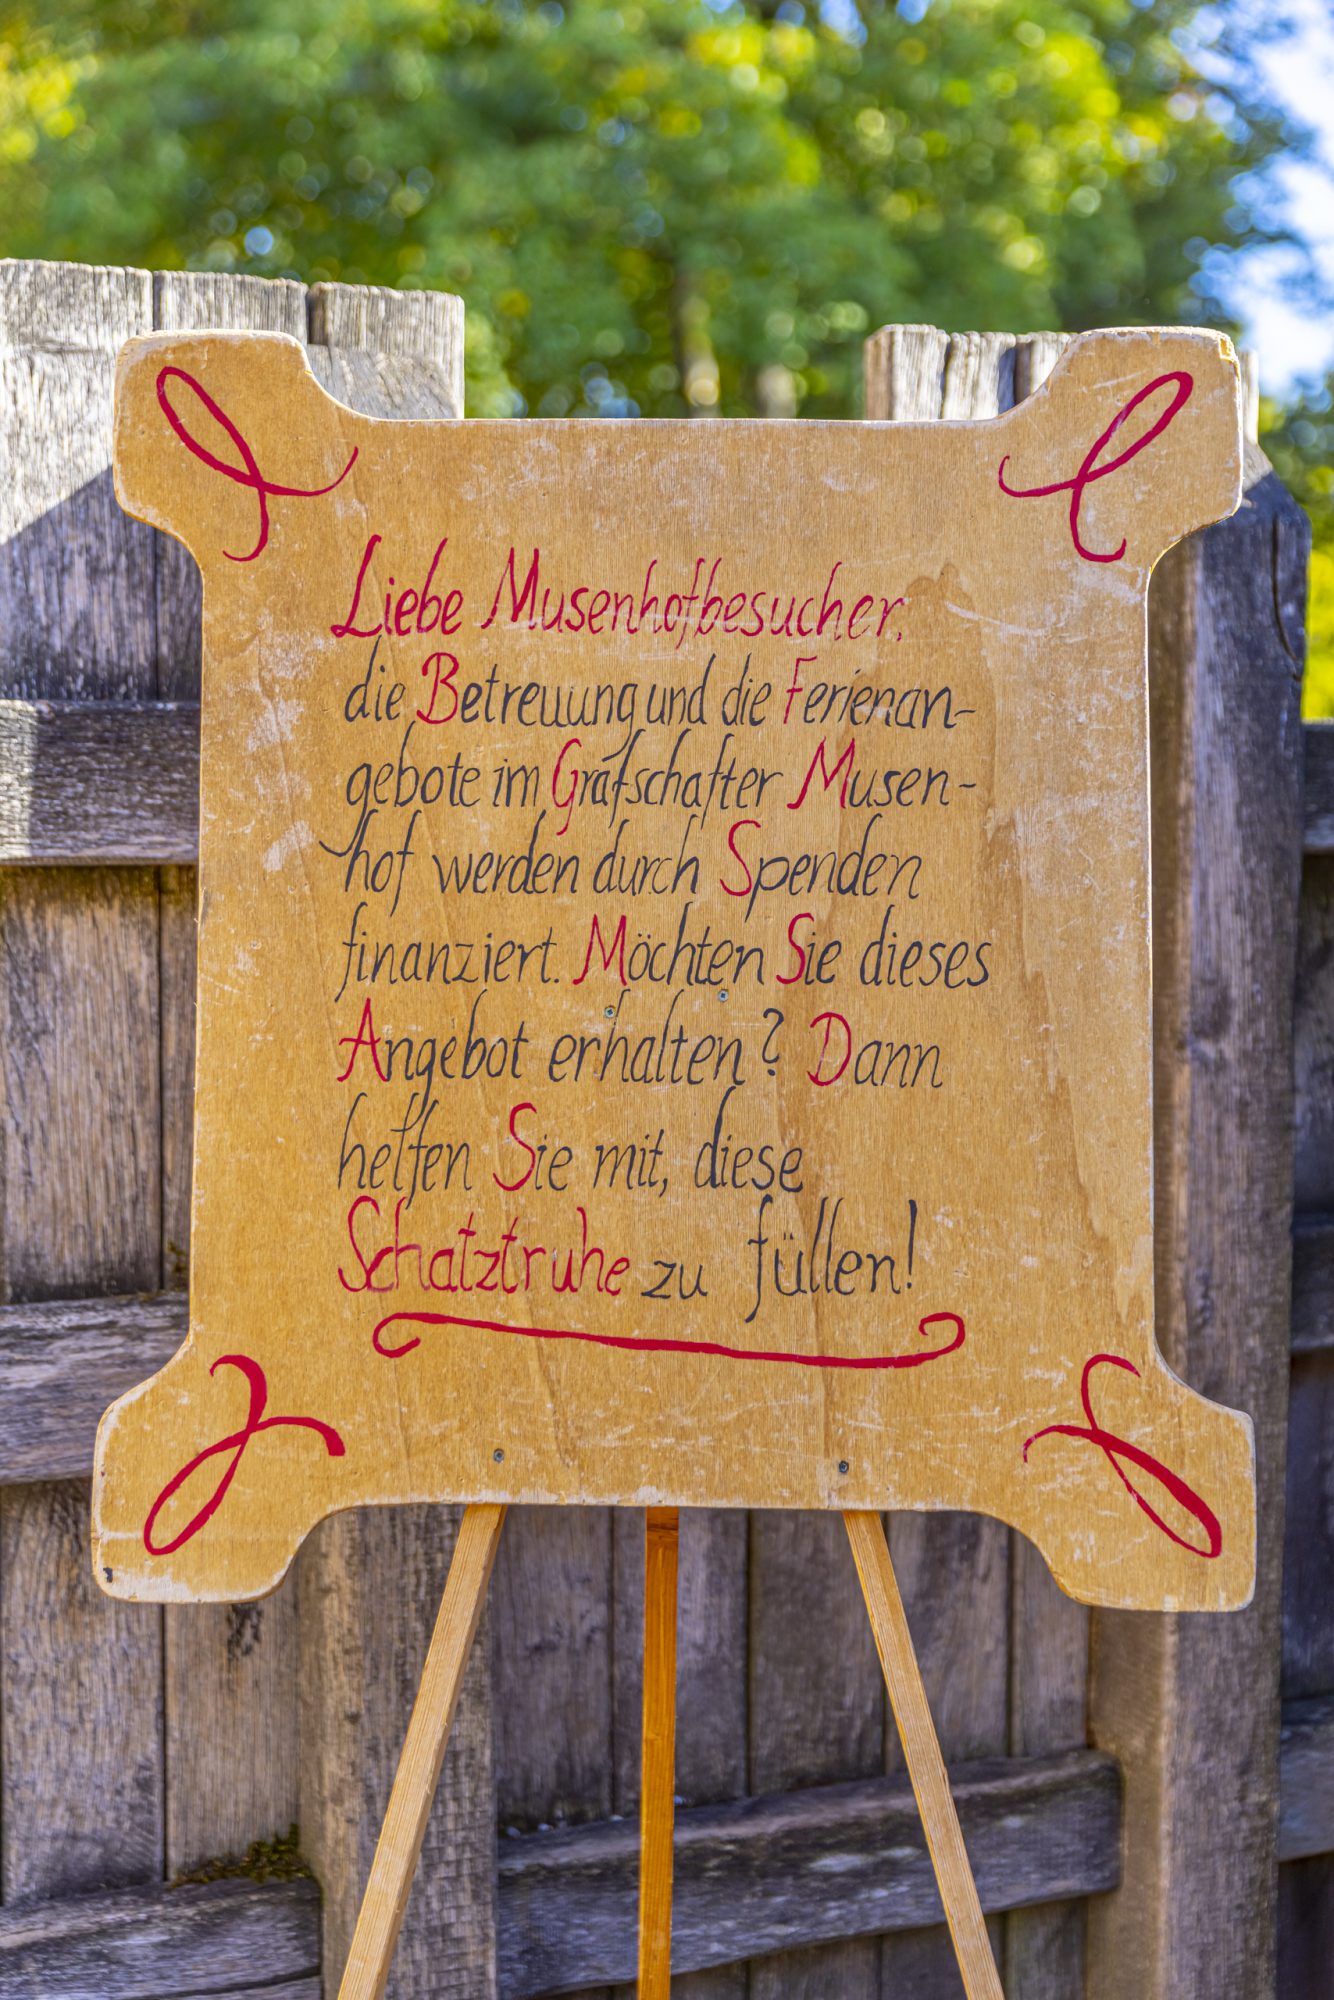 Liebe Musenhofbesucher,
die Betreuung und die Ferienan-
gebote im Grafschafter Musen-
hof werden durch Spenden
finanziert. Möchten Sie dieses
Angebot erhalten? Dann
helfen Sie mit, diese
Schatztruhe zu füllen!